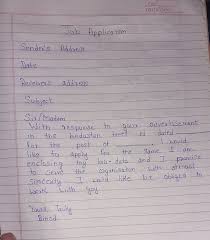 Job Application
Sender's Address
Date
Receivers address
Subject
Sir/Madam
With response to your advertisement
in the hindustan times dated
for the post of I would
like to apply for the same I am
enclosing my bio-data and I promise
to serve the organisation with utmost
sincerely I would like be obliged to
work with you
Yours Truly
Binod